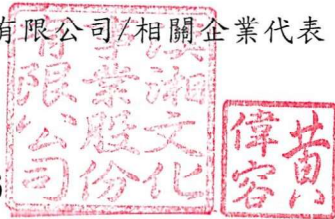 有限公司/相關企業代表
湘文化
事業股份
有限公司
黃
偉容